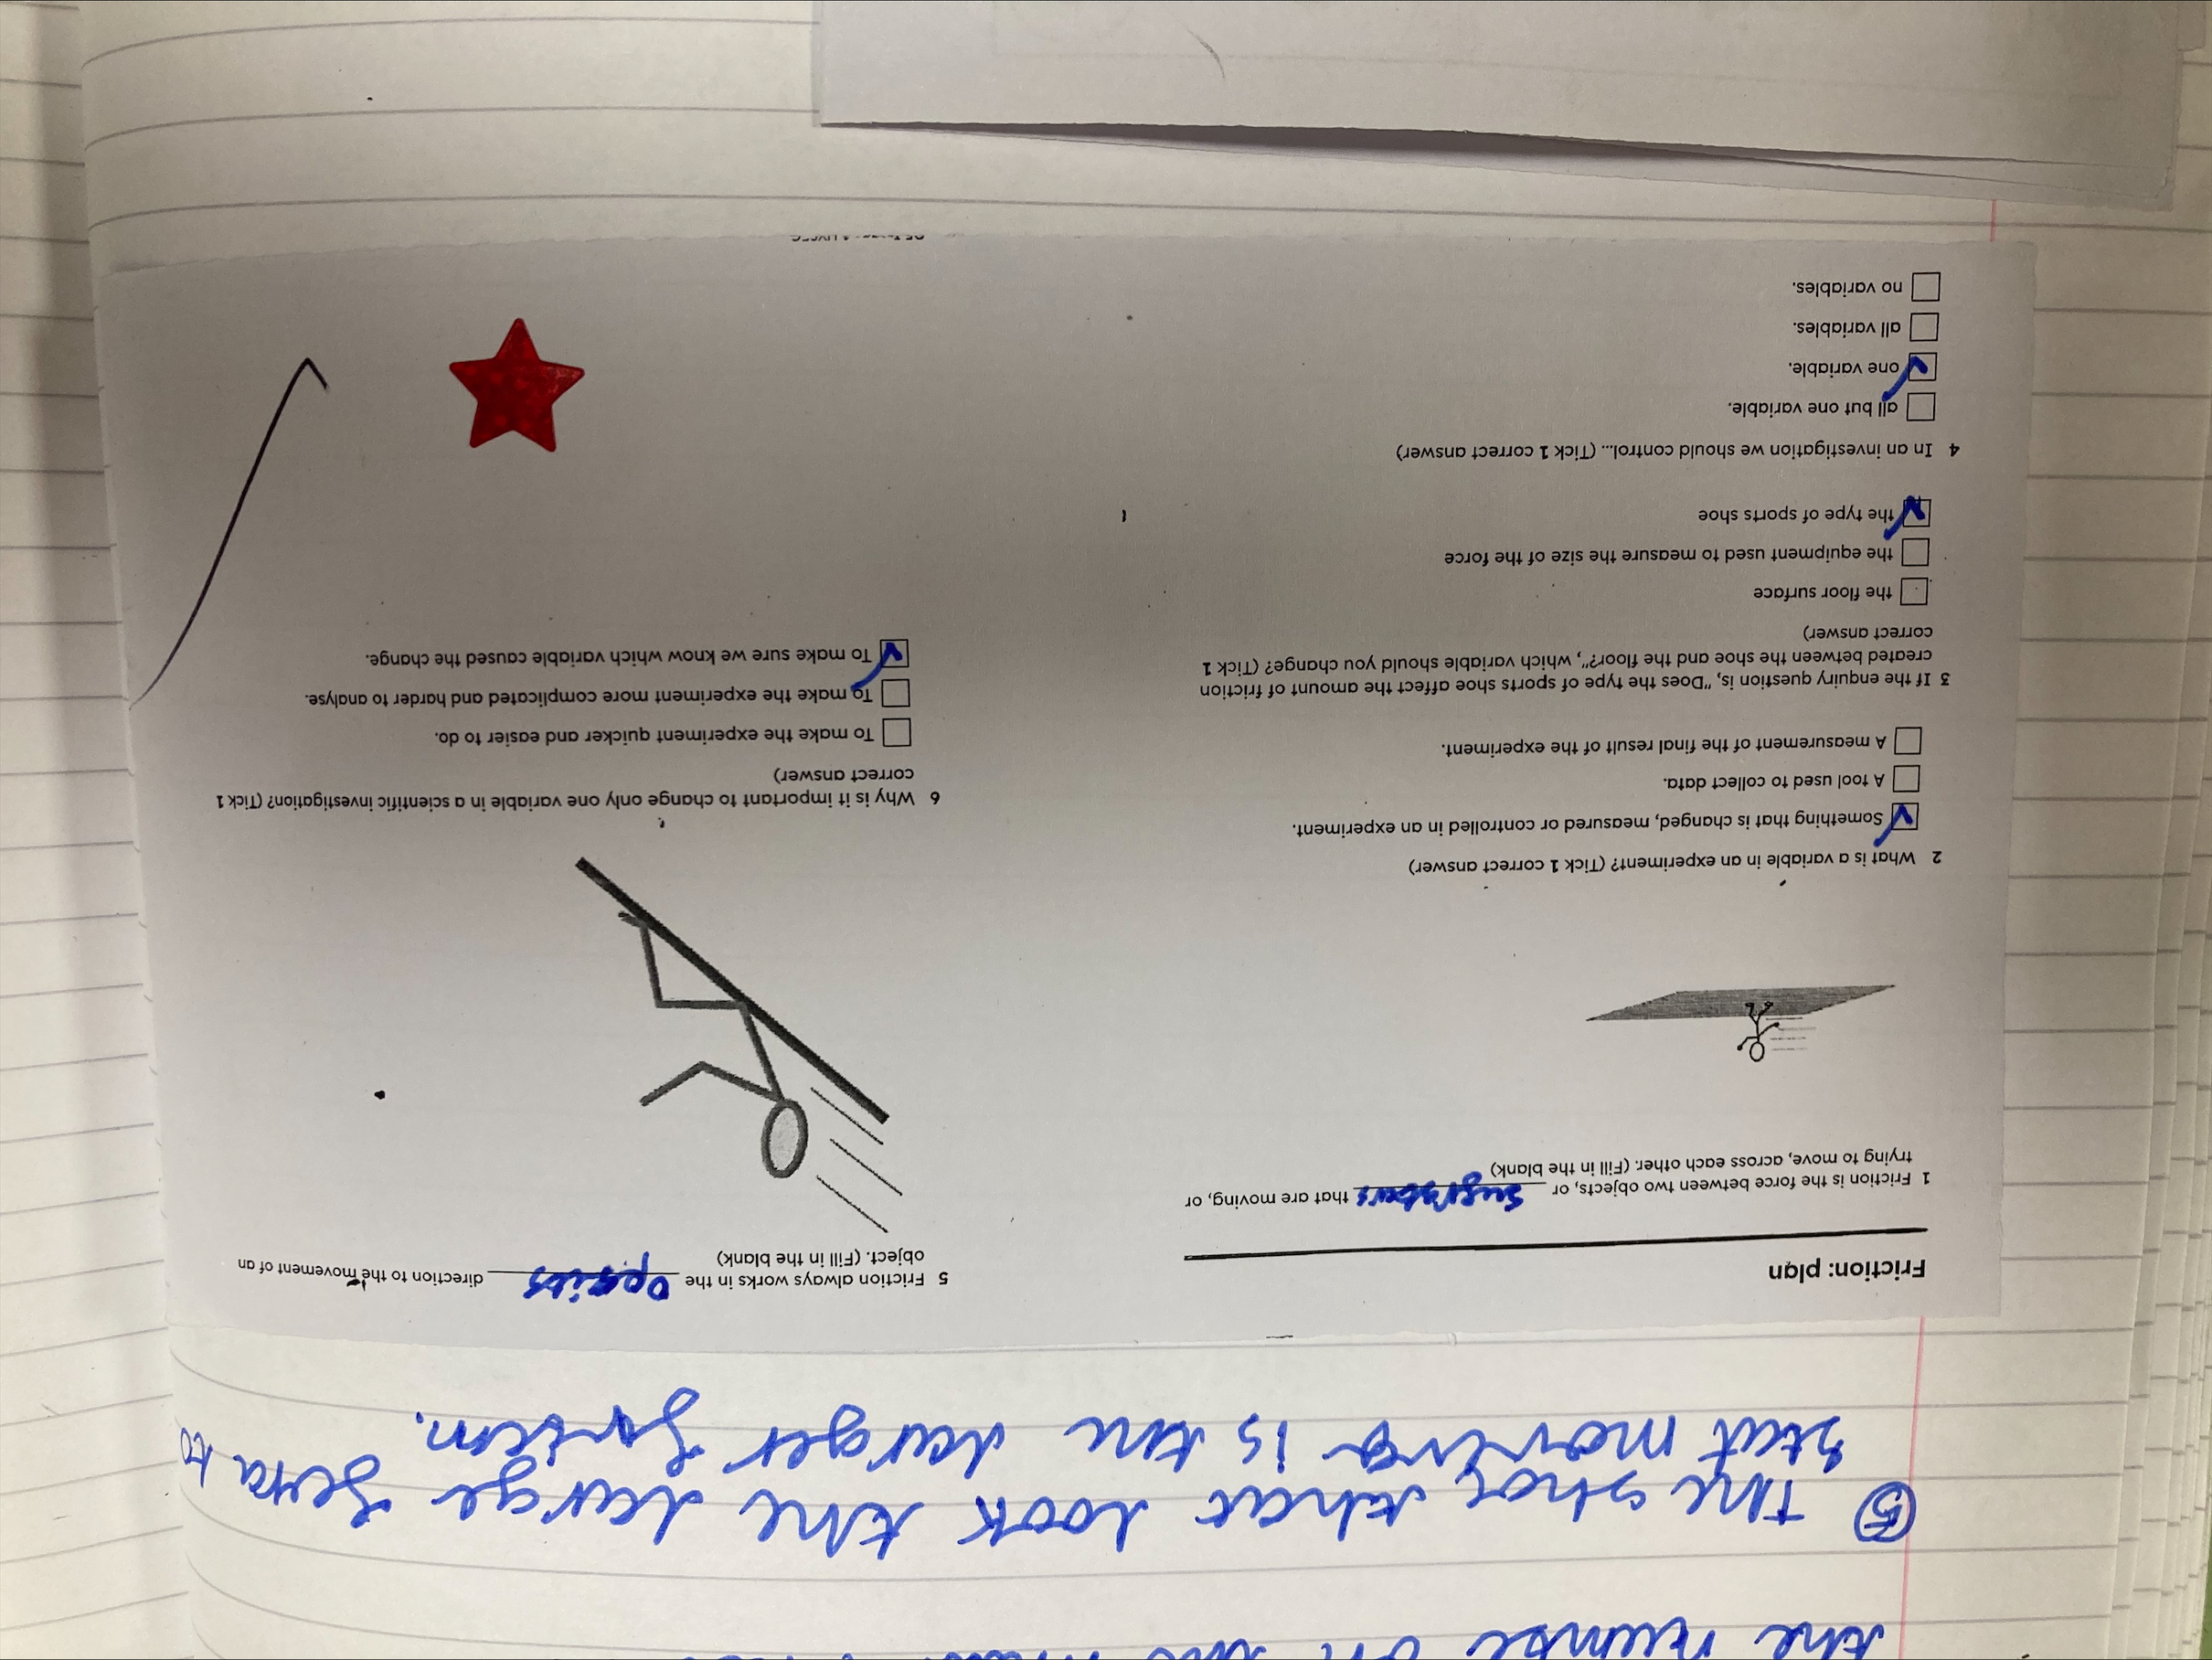 the numbe on the
⑤ The shoe that took the large fera to
stat moving is the larger fritem.
Friction: plan
1 Friction is the force between two objects, or that are moving, or
trying to move, across each other. (Fill in the blank)
2 What is a variable in an experiment? (Tick 1 correct answer)
Something that is changed, measured or controlled in an experiment.
A tool used to collect data.
A measurement of the final result of the experiment.
3 If the enquiry question is, "Does the type of sports shoe affect the amount of friction
created between the shoe and the floor?", which variable should you change? (Tick 1
correct answer)
the floor surface
the equipment used to measure the size of the force
the type of sports shoe
4 In an investigation we should control... (Tick 1 correct answer)
all but one variable.
one variable.
all variables.
no variables.
5 Friction always works in the opsits direction to the movement of an
object. (Fill in the blank)
6 Why is it important to change only one variable in a scientific investigation? (Tick 1
correct answer)
To make the experiment quicker and easier to do.
To make the experiment more complicated and harder to analyse.
To make sure we know which variable caused the change.